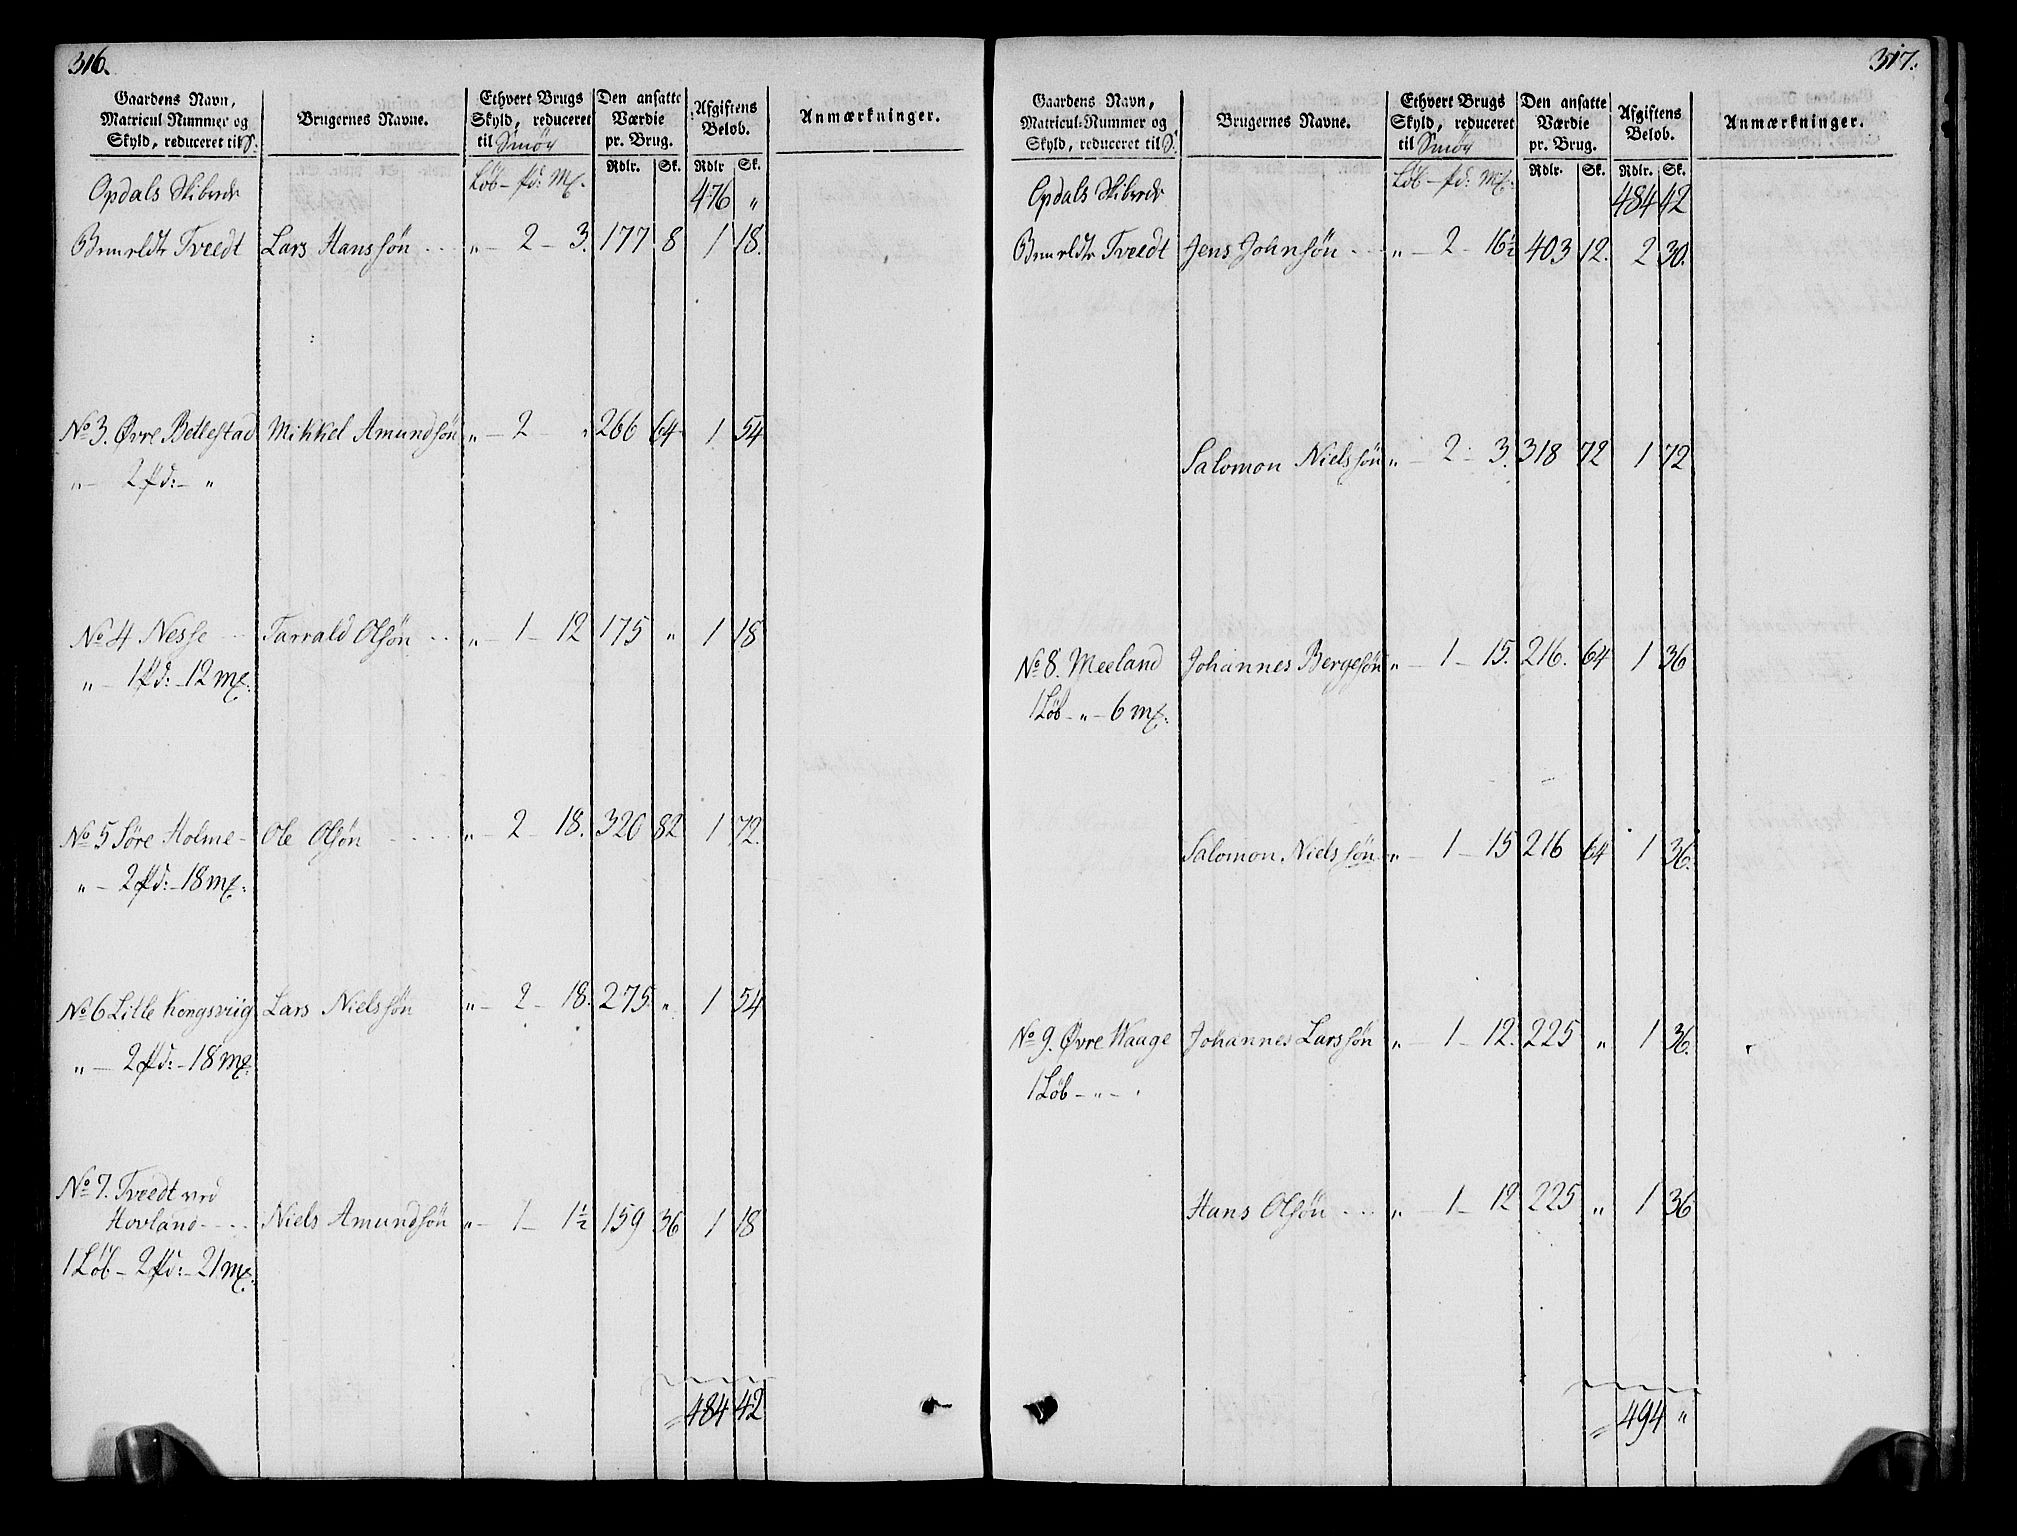 316.
Gaardens Navn, Matricul-Nummer og Skyld, reduceret til S: | Brugernes Navne. | Ethvert Brugs Skyld, reduceret til Smör | Den ansatte Værdie pr. Brug. | Afgiftens Beløb. | Anmærkninger.
Rdlr. | Sk. | Rdlr | Sk.
Opdals Skibrede | Löb - pd: Mk. | 476 | „
Tveedt | Lars Hanssön | „ - 2 - 3. | 177 | 8 | 1 | 18.
No 3. Øvre Bellestad | Mikkel Amundsön | „ - 2 - „ | 266 | 64 | 1 | 54
„ - 2 pd: - „
No 4 Nesse | Tarrald Olsön | „ - 1 - 12 | 175 | „ | 1 | 18
„ - 1 pd: - 12 mk:
No 5 Söre Holme - | Ole Olsön | „ - 2 - 18. | 320 | 82 | 1 | 72.
„ - 2 pd: - 18 mk:
No 6 Lille Kongsviig | Lars Nielssön | „ - 2 - 18. | 275 | „ | 1 | 54
„ - 2 pd: - 18 mk:
No 7. Tveedt ved
Hovland | Niels Amundsön | „ - 1 - 1½ | 159 | 36 | 1 | 18
1 Löb - 2 pd: - 21 mk:
484 | 42
317.
Gaardens Navn, Matricul-Nummer og Skyld, reduceret til S: | Brugernes Navne. | Ethvert Brugs Skyld, reduceret til Smör | Den ansatte Værdie pr. Brug. | Afgiftens Beløb. | Anmærkninger.
Rdlr. | Sk. | Rdlr. | Sk.
Opdals Skibrede | Löb - pd: Mk: | 484 | 42
Tveedt | Jens Johnsön | „ - 2 - 16½ | 403 | 12. | 2 | 30.
Salomon Nielssön | „ - 2 - 3. | 318 | 72 | 1 | 72
No 8. Meeland | Johannes Bergesön | „ - 1 - 15. | 216. | 64 | 1 | 36
1 Löb - „ - 6 mk:
Salomon Nielssön | „ - 1 - 15 | 216 | 64 | 1 | 36.
No 9. Øvre Waage | Johannes Larssön | „ - 1 - 12. | 225 | „ | 1 | 36.
1 Löb - „ - „
Hans Olsön | „ - 1 - 12 | 225 | „ | 1 | 36
494 | „